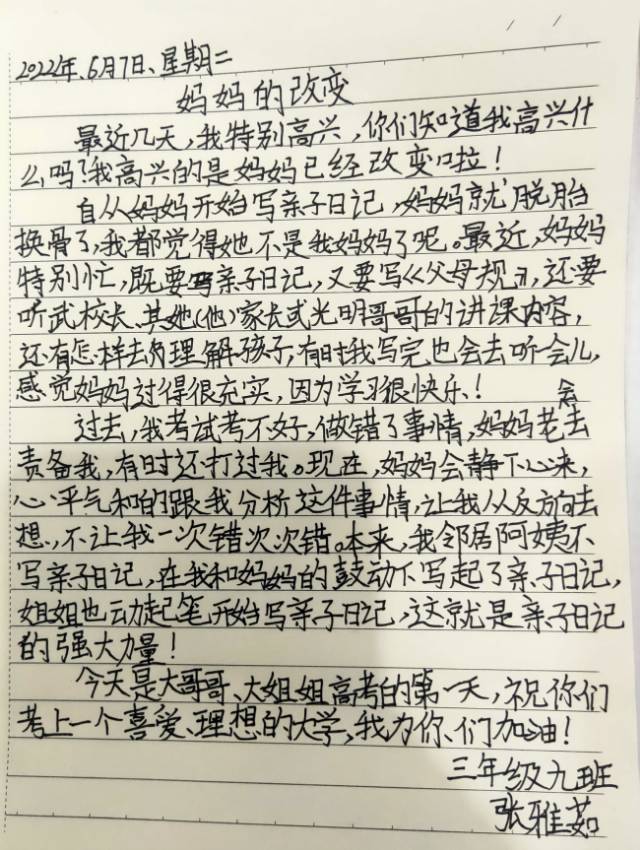 2022年、6月7日、星期二
妈妈的改变
最近几天,我特别高兴,你们知道我高兴什
么吗?我高兴的是妈妈已经改变啦!
自从妈妈开始写亲子日记,妈妈就'脱胎
换骨了,我都觉得她不是我妈妈了呢。最近,妈妈
特别忙,既要写亲子日记,又要写《父母规》,还要
听武校长、其她(他)家长或光明哥哥的讲课内容,
还有怎样去理解孩子,有时我写完也会去听会儿,
感觉妈妈过得很充实,因为学习很快乐!
会
过去,我考试考不好,做错了事情,妈妈老去
责备我,有时还打过我。现在,妈妈会静下心来,
心平气和的跟我分析这件事情,让我从反方向去
想,不让我一次错次次错。本来,我邻居阿姨不
写亲子日记,在我和妈妈的鼓动下写起了亲子日记,
姐姐也动起笔开始写亲子日记,这就是亲子日记
的强大力量!
今天是大哥哥、大姐姐高考的第一天,祝你们
考上一个喜爱、理想的大学,我为你们加油!
三年级九班
张雅茹